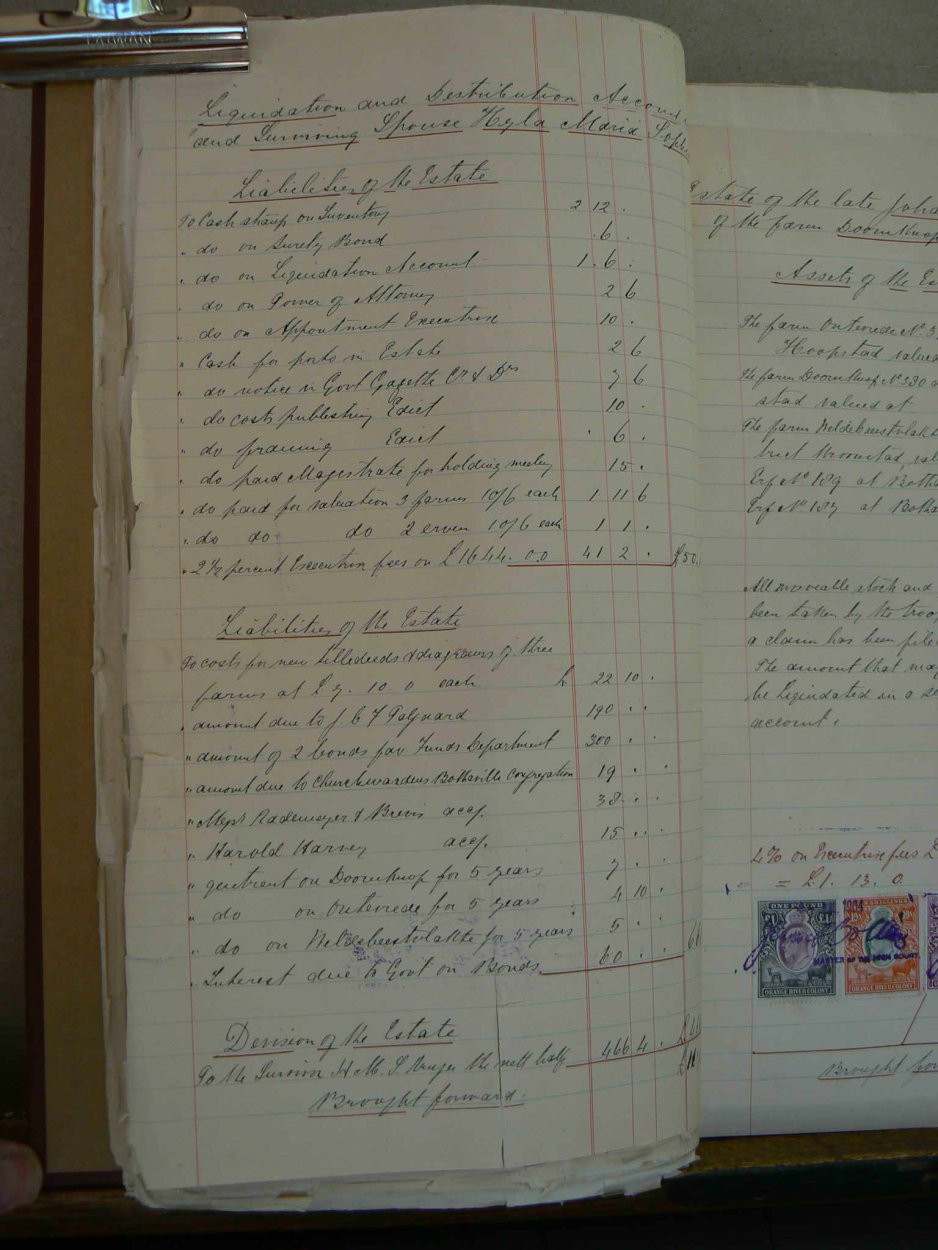 Liquidation and Distribution Account
and Surviving Spouse Heyla Maria Soph
Liabilities of the Estate
To Cash stamp on Inventory 2 12 .
" do on Surety Bond . 6 .
" do on Liquidation Account 1 . 6 .
" do on Power of Attorney 2 6
" do on Appointment Executrix 10 .
" Cash for ports in Estate 2 6
" do notice in Govt Gazette Crs & Drs 7 6
" do costs publishing Edict 10 .
" do framing Edict . 6 .
" do paid Magistrate for holding meeting 15 .
" do paid for valuation 3 farms 10/6 each 1 11 6
" do do do 2 erven 10/6 each 1 1 .
" 2½ percent Execution fees on £1644. 0.0 41 2 . £50.
Liabilities of the Estate
To costs for new titledeeds & diagrams of three
farms at £7. 10. 0 each £ 22 10 .
" amount due to J C F Taljaard 190 . .
" amount of 2 bonds fav Funds Department 300 . .
" amount due to Churchwardens Bothaville Congregation 19 . .
" Messrs Rademeyer & Brevis accf. 38 . .
" Harold Harvey accf. 15 . .
" quitrent on Doornknop for 5 years 7 . .
" do on Outevrede for 5 years 4 10 .
" do on Wildebeestvlakte for 5 years 5 . .
" Interest due to Govt on Bonds 60 . .
Devision of the Estate
To the Survivor H. M. S Kruger the nett half 466 4 .
Brought forward.
Estate of the late Joha
of the farm Doornknop
Assets of the Es
The farm Outevrede No 3
Hoopstad valued
The farm Doornknop No 330
stad valued at
The farm Wildebeestvlakt
trict Kroonstad, val
Erf No 189 at Botha
Erf No 187 at Botha
All moveable stock and
been taken by the troo
a claim has been file
The amount that may
be liquidated in a se
account.
4% on Executrix fees £
= £1. 13. 0.
ONE POUND
£1 £1
ORANGE RIVER COLONY
1904
SHILLINGS
MASTER OF THE HIGH COURT.
ORANGE RIVER COLONY
Brought for